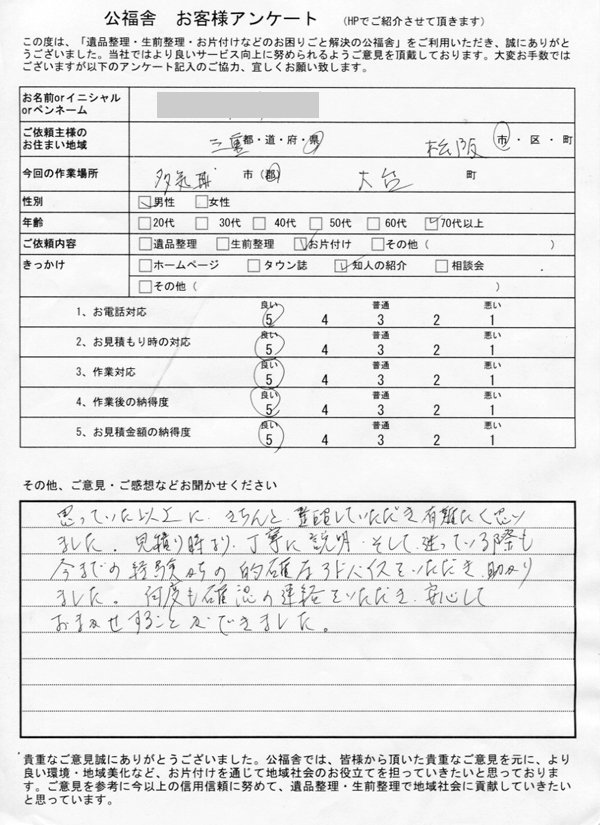 公福舎 お客様アンケート (HPでご紹介させて頂きます)
この度は、「遺品整理・生前整理・お片付けなどのお困りごと解決の公福舎」をご利用いただき、誠にありがと
うございました。当社ではより良いサービス向上に努められるようご意見を頂戴しております。大変お手数では
ございますが以下のアンケート記入のご協力、宜しくお願い致します。
お名前orイニシャル
orペンネーム
ご依頼主様の
お住まい地域 三重 都・道・府・県 松阪 市・区・町
今回の作業場所 多気郡 市(郡) 大台 町
性別 男性 女性
年齢 20代 30代 40代 50代 60代 70代以上
ご依頼内容 遺品整理 生前整理 お片付け その他( )
きっかけ ホームページ タウン誌 知人の紹介 相談会
その他( )
良い 普通 悪い
1、お電話対応 5 4 3 2 1
良い 普通 悪い
2、お見積もり時の対応 5 4 3 2 1
良い 普通 悪い
3、作業対応 5 4 3 2 1
良い 普通 悪い
4、作業後の納得度 5 4 3 2 1
良い 普通 悪い
5、お見積金額の納得度 5 4 3 2 1
その他、ご意見・ご感想などお聞かせください
思っていた以上に、きちんと、整理していただき有難たく思い
ました。見積り時より、丁寧に説明、そして、迷っている際も
今までの経験からの的確なアドバイスをいただき、助かり
ました。何度も確認の連絡をいただき、安心して
おまかせすることができました。
貴重なご意見誠にありがとうございました。公福舎では、皆様から頂いた貴重なご意見を元に、より
良い環境・地域美化など、お片付けを通じて地域社会のお役立てを担っていきたいと思っておりま
す。ご意見を参考に今以上の信用信頼に努めて、遺品整理・生前整理で地域社会に貢献していきたい
と思っています。